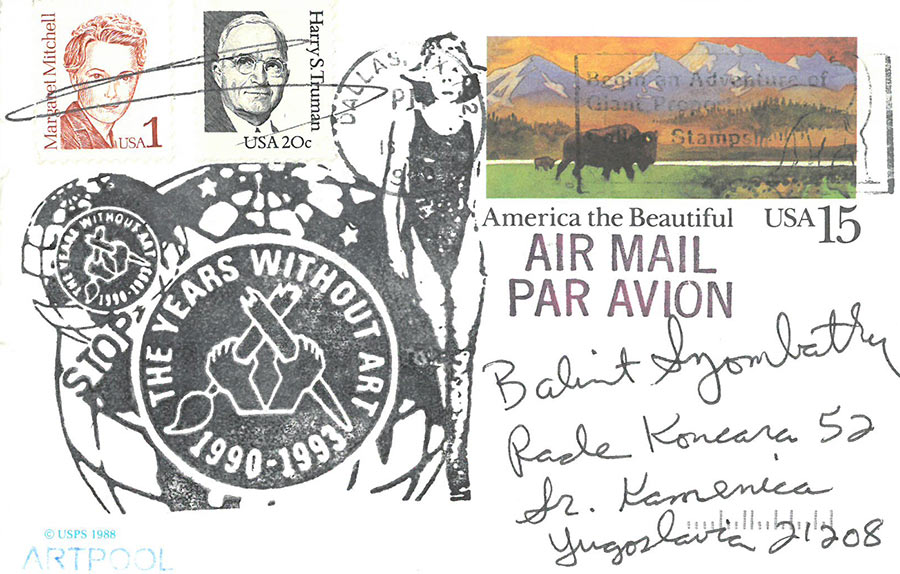 Margaret Mitchell
USA 1
Harry S. Truman
USA 20c
DALLAS, TX
P
2
Begin an Adventure of
Giant Propor
Stamps!
America the Beautiful USA 15
AIR MAIL
PAR AVION
THE YEARS WITHOUT ART
1990-1993
STOP
THE YEARS WITHOUT ART
1990-1993
Balint Szombathy
Rade Koncara 52
Sr. Kamenica
Yugoslavia 21208
© USPS 1988
ARTPOOL